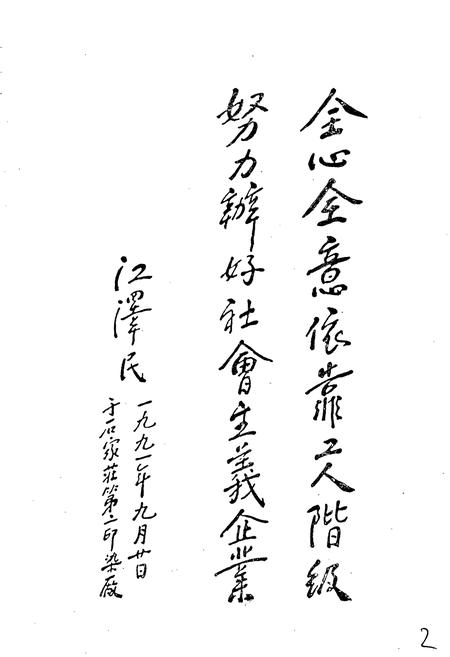 全心全意依靠工人階级
努力辦好社會主義企業
江澤民
一九九一年九月廿日
于石家莊第二印染廠
2